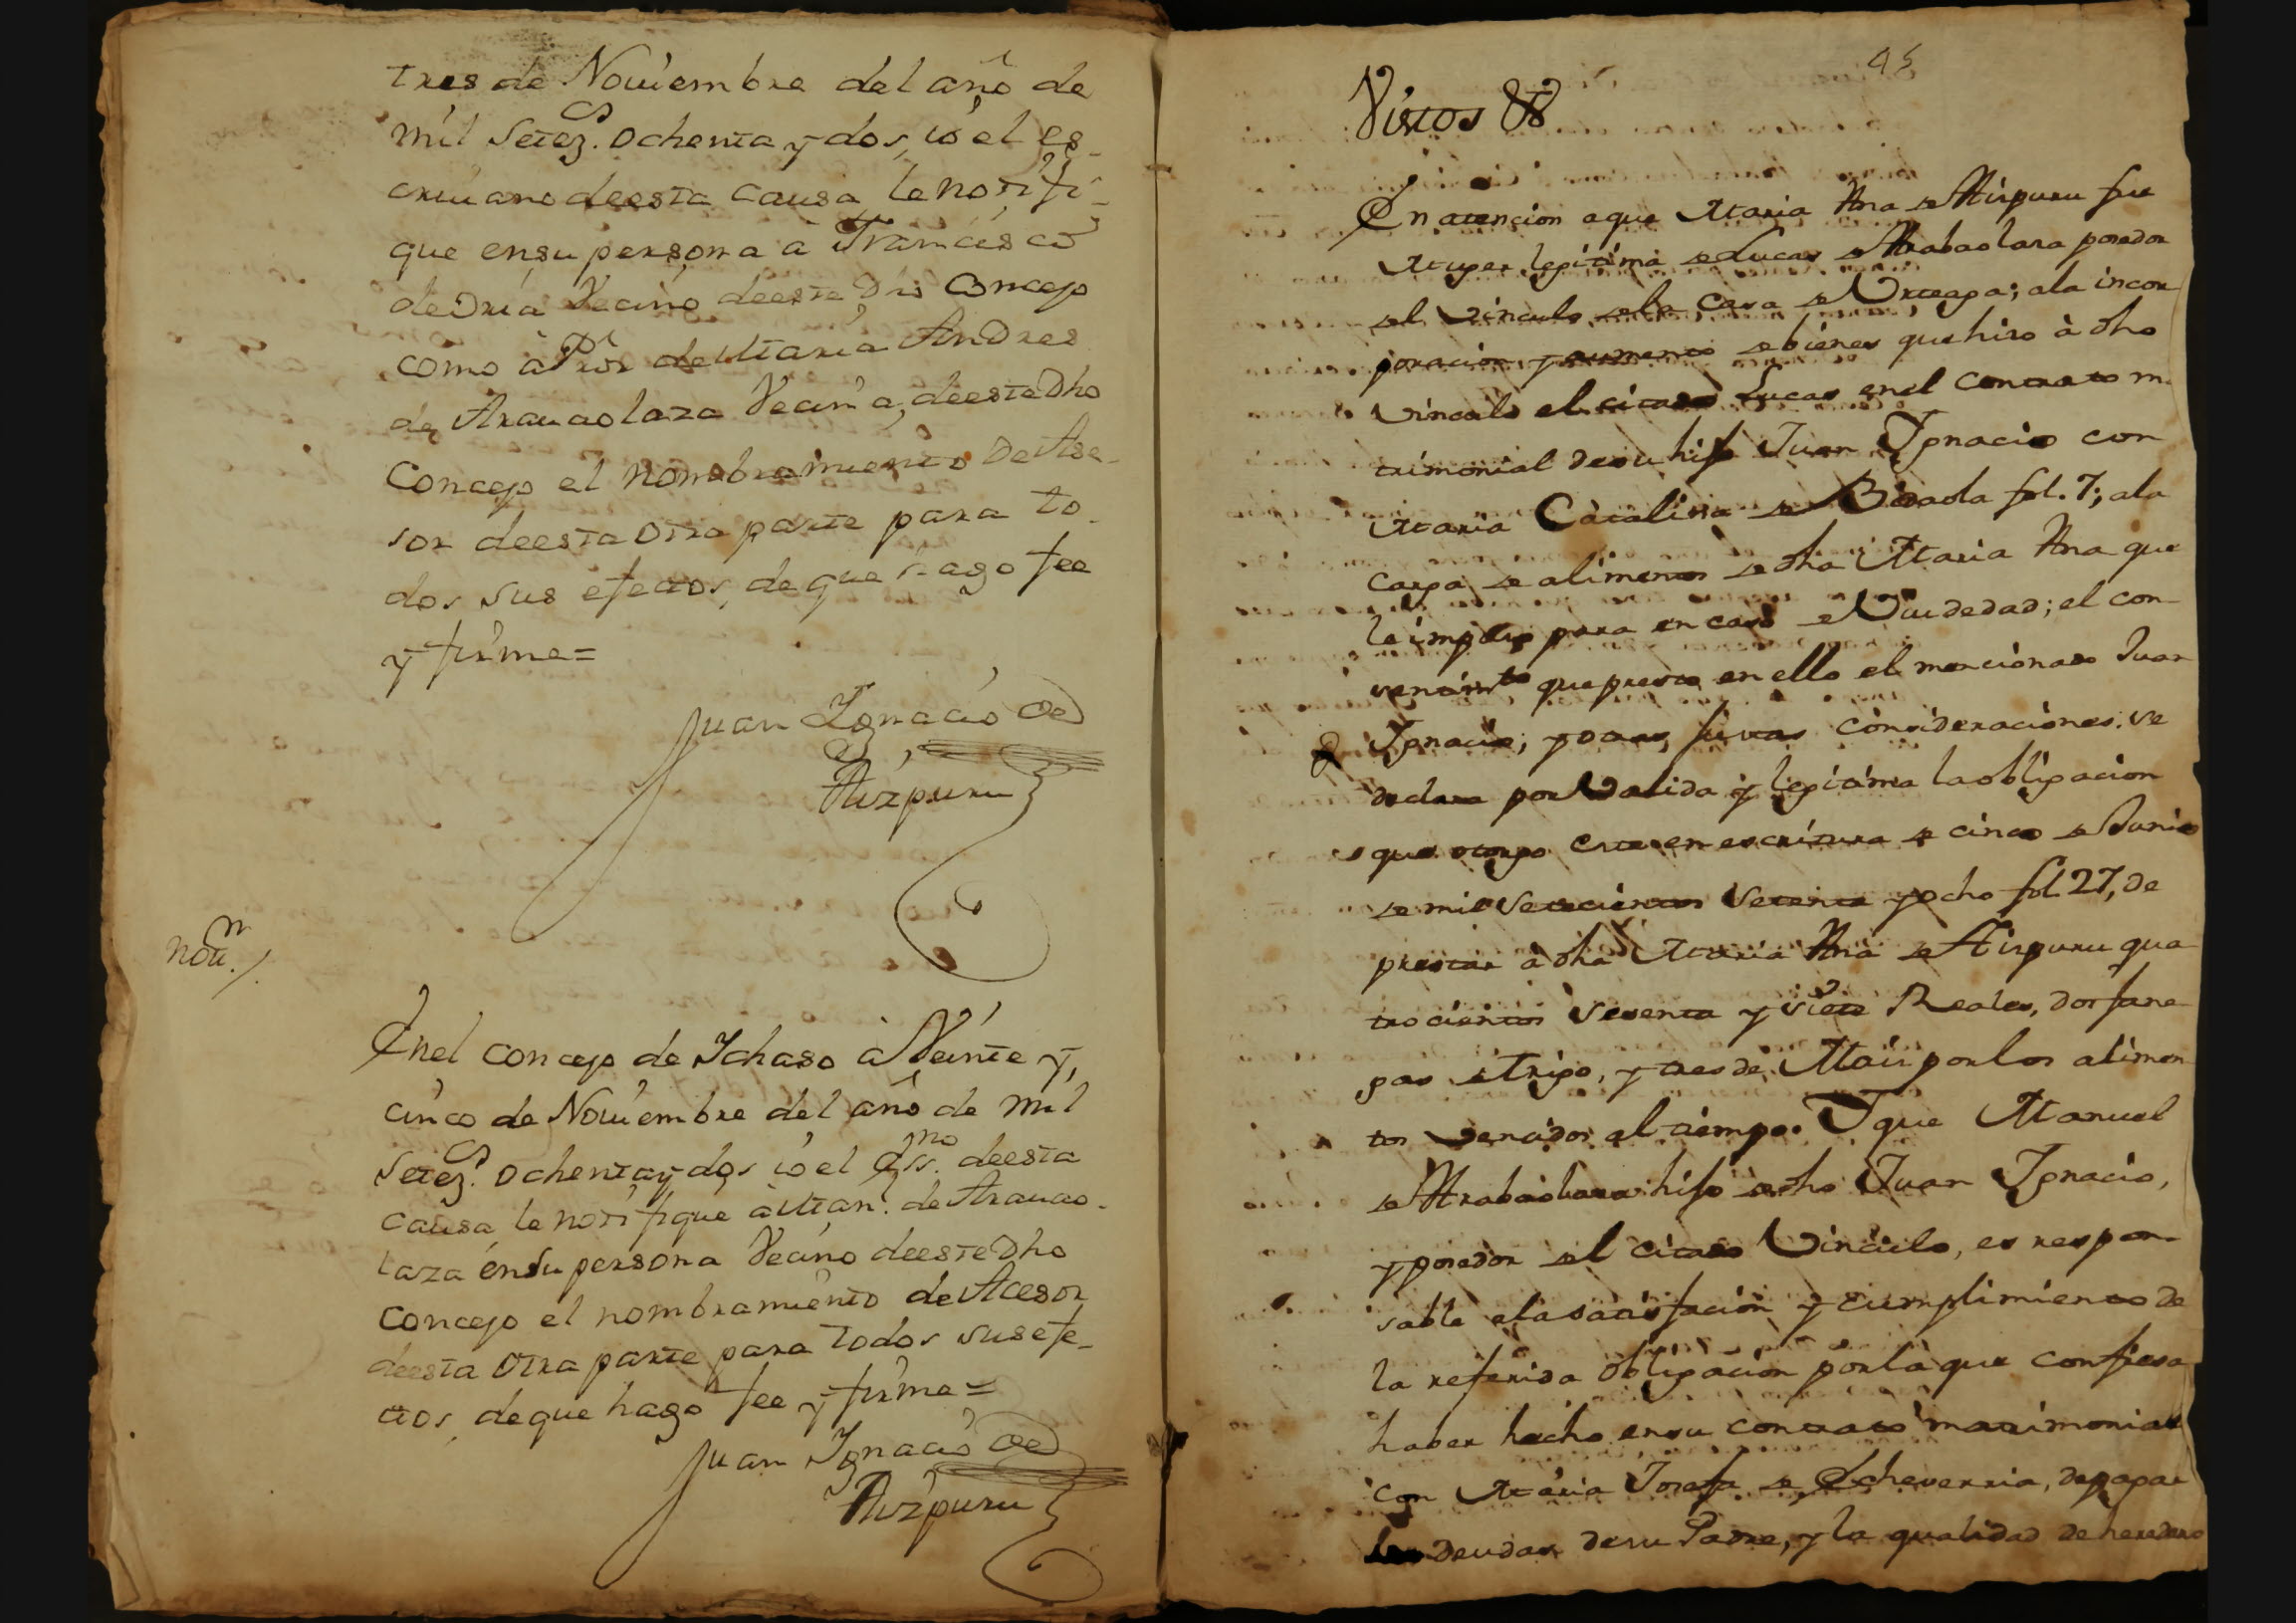 tres de Nouiembre del año de
mil Setez.s ochenta y dos, io el es-
criuano deesta causa le notifi-
que ensu persona à Francisco
de Dria Vecino deeste Dho Concejo
como à P.or de Maria Andres
de Arauaolaza Vecina, deeste Dho
Concejo el nombramiento De Ase-
sor deesta otra parte para to-
dos sus efectos, de que hago fee
y firme=
Juan Ignacio de
Aizpuru
nou.n /.
Enel concejo de Ichaso à Veinte y,
cinco de Nouiembre del año de mil
Setez.s ochentay dos io el Ess.no deesta
causa, le notifique à Man.l de Arauao-
laza ensu persona Vecino deeste Dho
Concejo el nombramiento de Acesor
deesta otra parte para todos sus efe-
ctos, deque hago fee y firme=
Juan Ignacio de
Aizpuru
45
Vistos &
En atencion aque Maria Ana de Aispuru fue
Muger legitima de Lucas de Arabaolara poseedor
del Vinculo de la Casa de Urteaga; ala incor
poracion y aumento de bienes que hiso à dho
Vinculo el citado Lucas enel Contrato m.
trimonial desu hijo Juan Ignacio con
Maria Catalina de fol. 7; ala
carga de alimentos de dha Maria Ana que
le impuso para en caso de Viudedad; el con-
sentim.to que presto en ello el mencionado Juan
Ignacio; y otras, consideraciones. se
declara por Valida y legitima la obligacion
que otorgo este en escritura de cinco de Junio
de mil Setecientos Setenta y ocho fol. 27, de
prestar à dha Maria Ana de Aispuru qua
trocientos Sesenta y siete Reales, dos fane-
gas de trigo, y tres de Mais por los alimen
tos Vencidos al tiempo. Y que Manuel
de Arabaolaza hijo de dho Juan Ignacio,
y poseedor del citado Vinculo, es respon-
sable ala satisfacion y cumplimiento de
la referida obligacion por la que confiesa
haber hecho ensu contrato matrimonial
con Maria Josefa de Echeverria, de pagar
las deudas desu Padre, y la qualidad de heredero